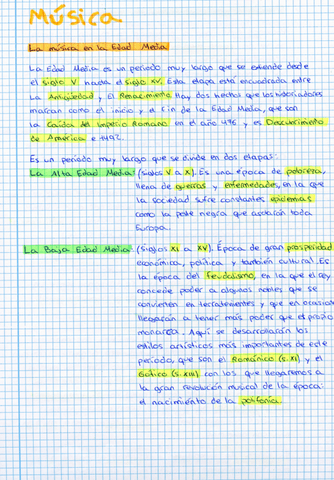 Música
La música en la Edad Media
La Edad Media es un periodo muy largo que se extiende desde
el siglo V hasta el siglo XV. Esta etapa está encuadrada entre
La Antigüedad y El Renacimiento. Hay dos hechos que los historiadores
marcan como el inicio y el fin de la Edad Media, que son
la Caída del Imperio Romano en el año 476 y es Descubrimiento
de América e 1492.
Es un periodo muy largo que se divide en dos etapas:
La Alta Edad Media: (siglos V a X). Es una época de pobreza,
llena de guerras y enfermedades, en la que
la sociedad sufre constantes epidemias
como la peste negra que asolarán toda
Europa.
La Baja Edad Media: (Siglos XI a XV). Época de gran prosperidad
económica, política y también cultural. Es
la época del feudalismo, en la que el rey
concede poder a algunos nobles que se
convierten en terratenientes y que en ocasion
llegarán a tener más poder que el propio
monarca. Aquí se desarrollarán los
estilos artísticos más importantes de este
periodo, que son el Románico (s. XI) y el
Gótico (s. XIII) con los que llegaremos a
la gran revolución musical de la época:
el nacimiento de la polifonía.